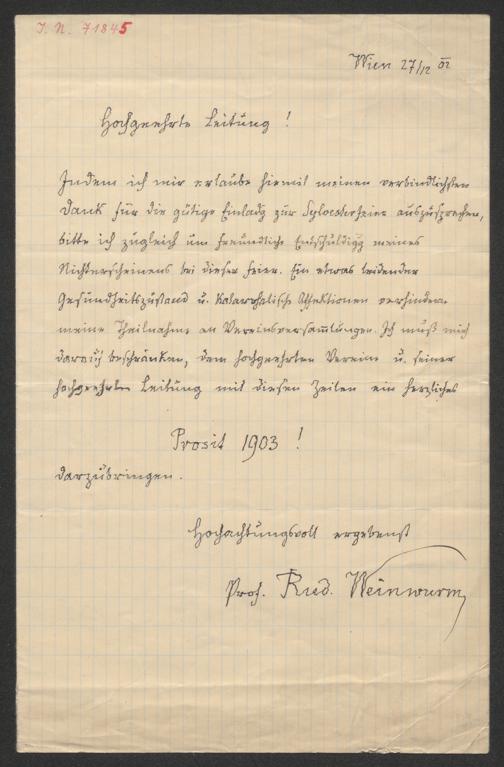 I. N. 71845
Wien 27/12 02
Hochgeehrte Leitung !
Indem ich mir erlaube hiemit meinen verbindlichsten
Dank für die gütige Einladg zur Sylvesterfeier auszusprechen,
bitte ich zugleich um freundliche Entschuldigg meines
Nichterscheinens bei dieser Feier. Ein etwas leidender
Gesundheitszustand u. katarrhalische Affektionen verhindern
meine Theilnahme an Vereinsversammlungen. Ich muß mich
darauf beschränken, dem hochgeehrten Vereine u. seiner
hochgeehrten Leitung mit diesen Zeilen ein herzliches
Prosit 1903 !
darzubringen.
Hochachtungsvoll ergebenst
Prof. Rud. Weinwurm